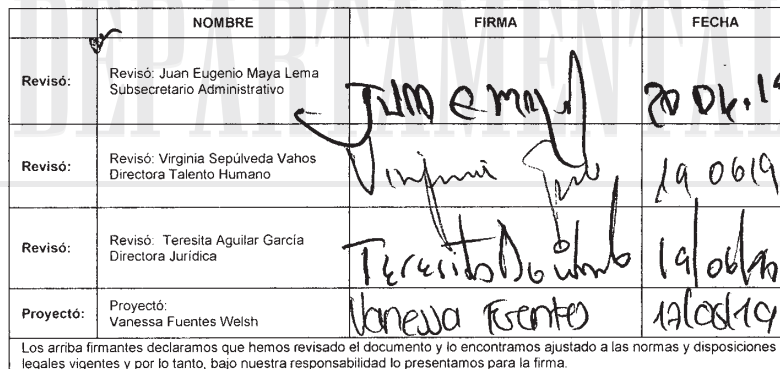 DEPARTAMENTAL
NOMBRE FIRMA FECHA
Revisó: Revisó: Juan Eugenio Maya Lema
Subsecretario Administrativo
Revisó: Revisó: Virginia Sepúlveda Vahos
Directora Talento Humano
19 06 19
Revisó: Revisó: Teresita Aguilar García
Directora Jurídica
Proyectó: Proyectó:
Vanessa Fuentes Welsh
Vanessa Fuentes
Los arriba firmantes declaramos que hemos revisado el documento y lo encontramos ajustado a las normas y disposiciones
legales vigentes y por lo tanto, bajo nuestra responsabilidad lo presentamos para la firma.